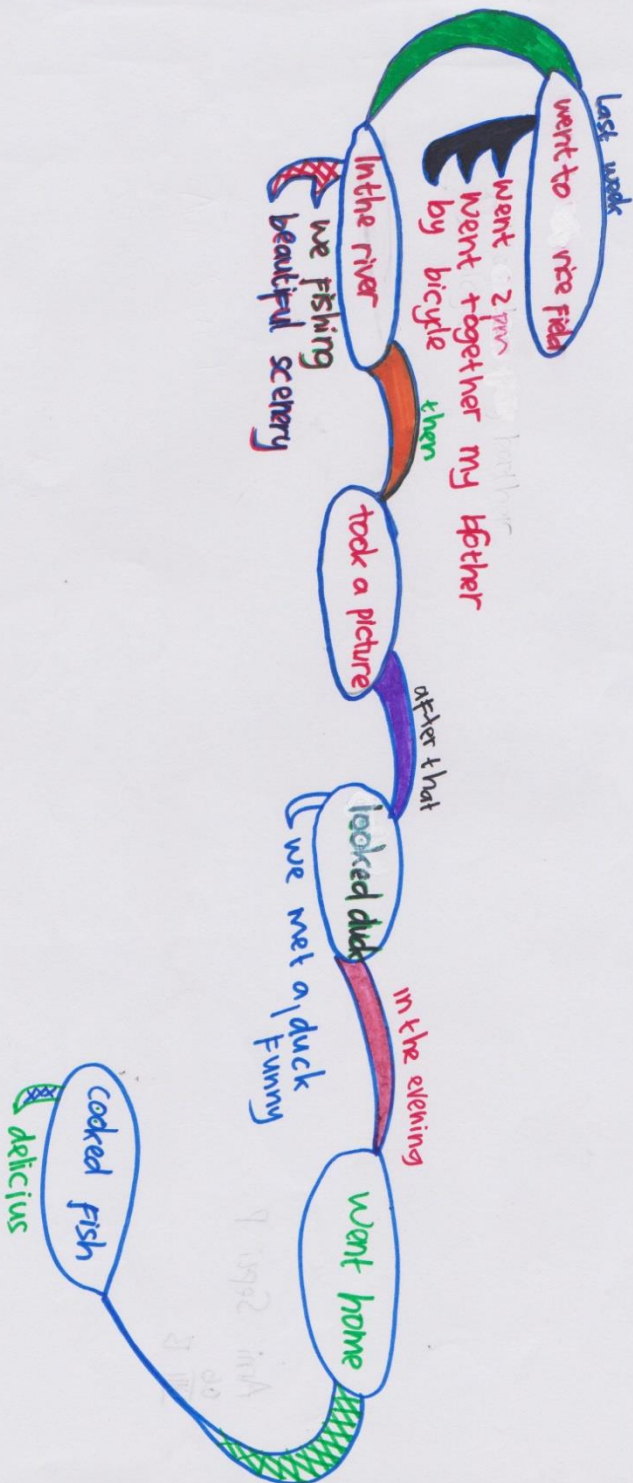 Last week
went to rice field
went 2 pm
went together my brother
by bicycle
In the river
we fishing
beautiful scenery
then
took a picture
after that
looked duck
we met a duck
Funny
in the evening
Went home
cooked fish
delicius